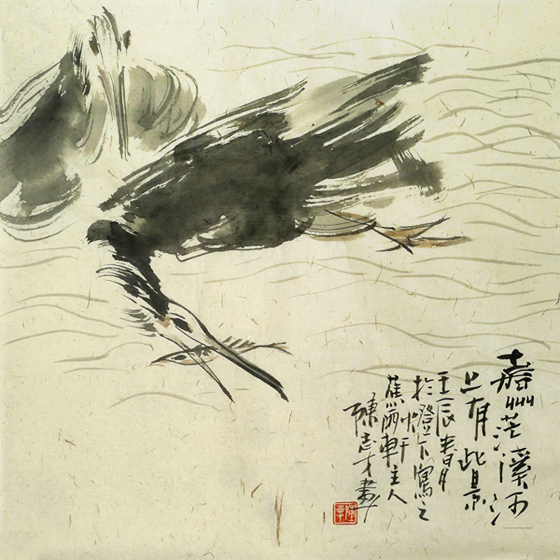 嘉州茫溪河
上有此景
壬辰春月
於燈下寫之
蕉雨軒主人
陳志才畫